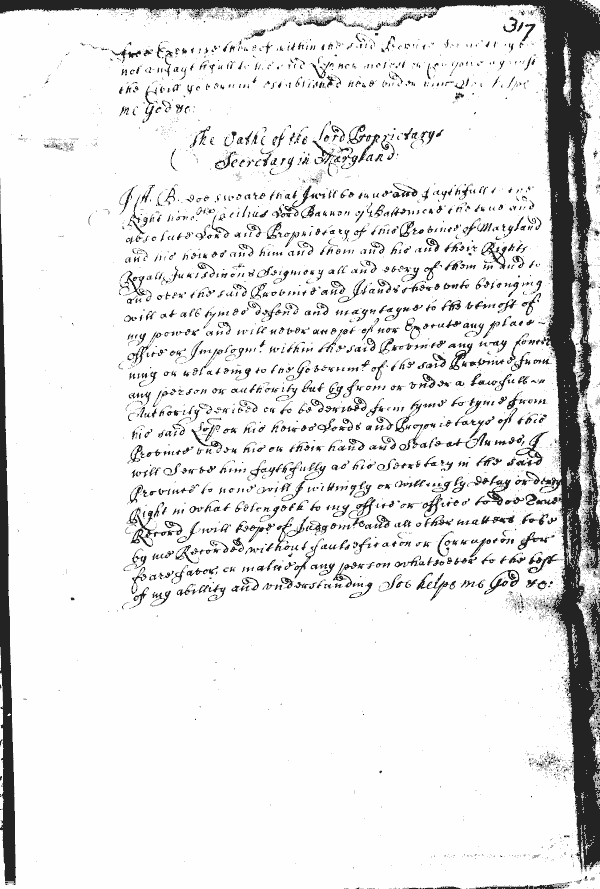 317
free Exercise thereof within the said Province
not unfaythfull to the said Lord nor molest or Conspire against
the Civill Governmt established here under him Soe helpe
me God &c:
The Oathe of the Lord Proprietarys
Secretary in Maryland:
I A. B. doe sweare that I will be true and faythfull to the
Right honoble Cecilius Lord Barron of Baltemore the true and
absolute Lord and Proprietary of this Province of Maryland
and his heires and him and them and his and their Rights
Royall Jurisdicons Seignory all and every of them in and to
and over the said Province and Ilands thereunto belonging
will at all tymes defend and mayntayne to the utmost of
my power and will never accept of nor Execute any place
office or Imploymt within the said Province any way Concer
ning or relateing to the Governmt of the said Province from
any person or authority but by from or under a lawfull
Authority derived or to be derived from tyme to tyme from
his said Lopp or his heires Lords and Proprietarys of this
Province under his or their hand and Seale at Armes, I
will Serve him faythfully as his Secretary in the said
Province to none will I wittingly or willingly delay or deny
Right in what belongeth to my office or offices to doe True
Record I will keepe of Judgemts and all other matters to be
by me Recorded without faulsificaton or Corrupcon for
feare favor, or malice of any person whatsoever to the best
of my abillity and understanding Soe helpe me God &c: